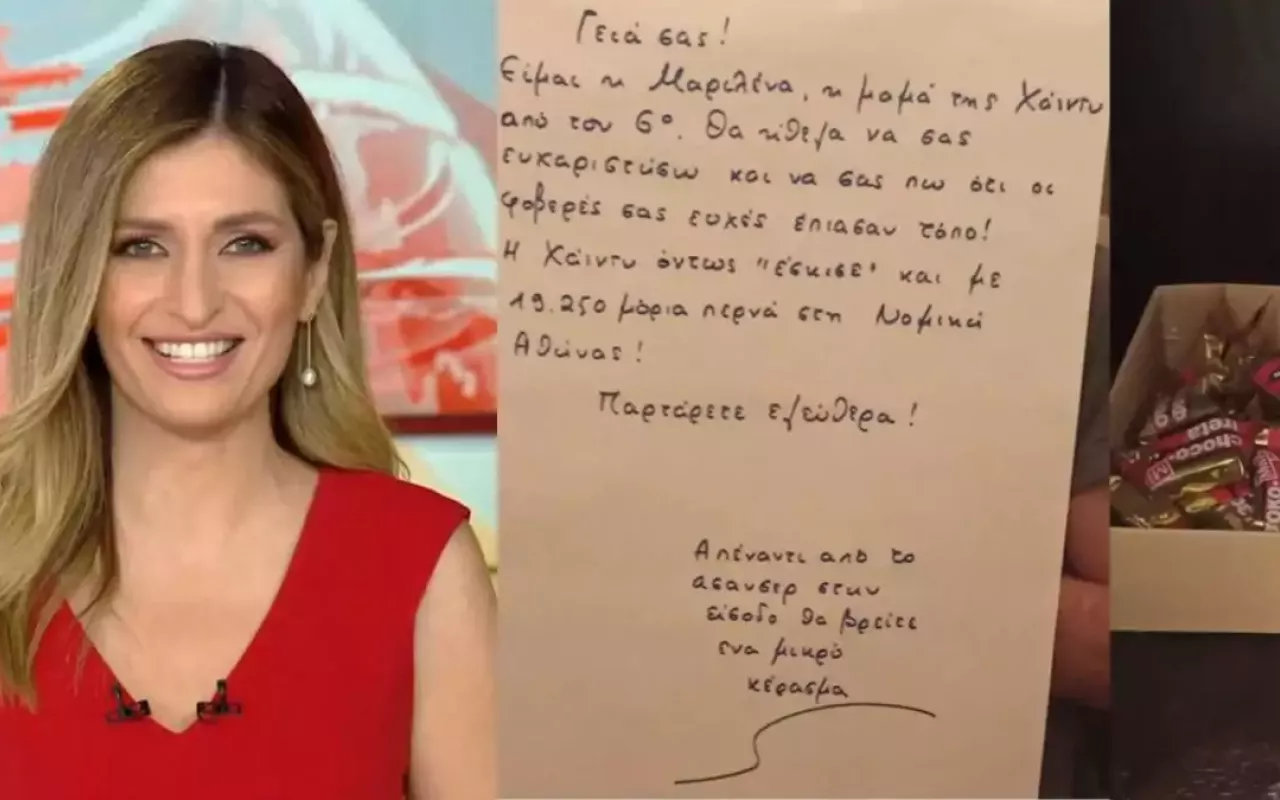 Γειά σας!
Είμαι η Μαριλένα, η μαμά της Χάιντυ
από τον 6º. Θα ήθελα να σας
ευχαριστήσω και να σας πω ότι οι
φοβερές σας ευχές έπιασαν τόπο!
Η Χάιντυ όντως "έσκισε" και με
19.250 μόρια περνά στη Νομική
Αθήνας!
Παρτάρετε ελεύθερα!
Απέναντι από το
ασανσερ στην
είσοδο θα βρείτε
ενα μικρό
κέρασμα
choco
freta